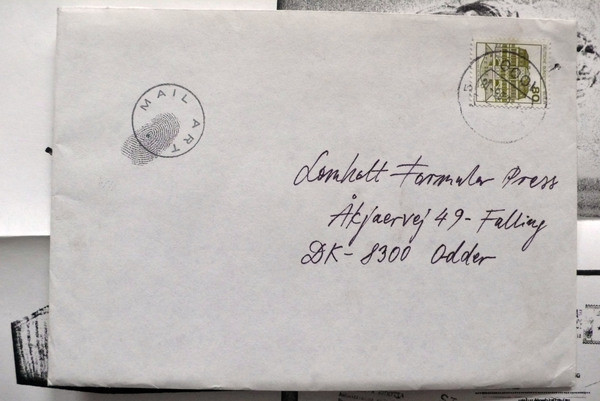 MAIL ART
80
Lomholt Formular Press
Åkjaervej 49 - Falling
DK - 8300 Odder